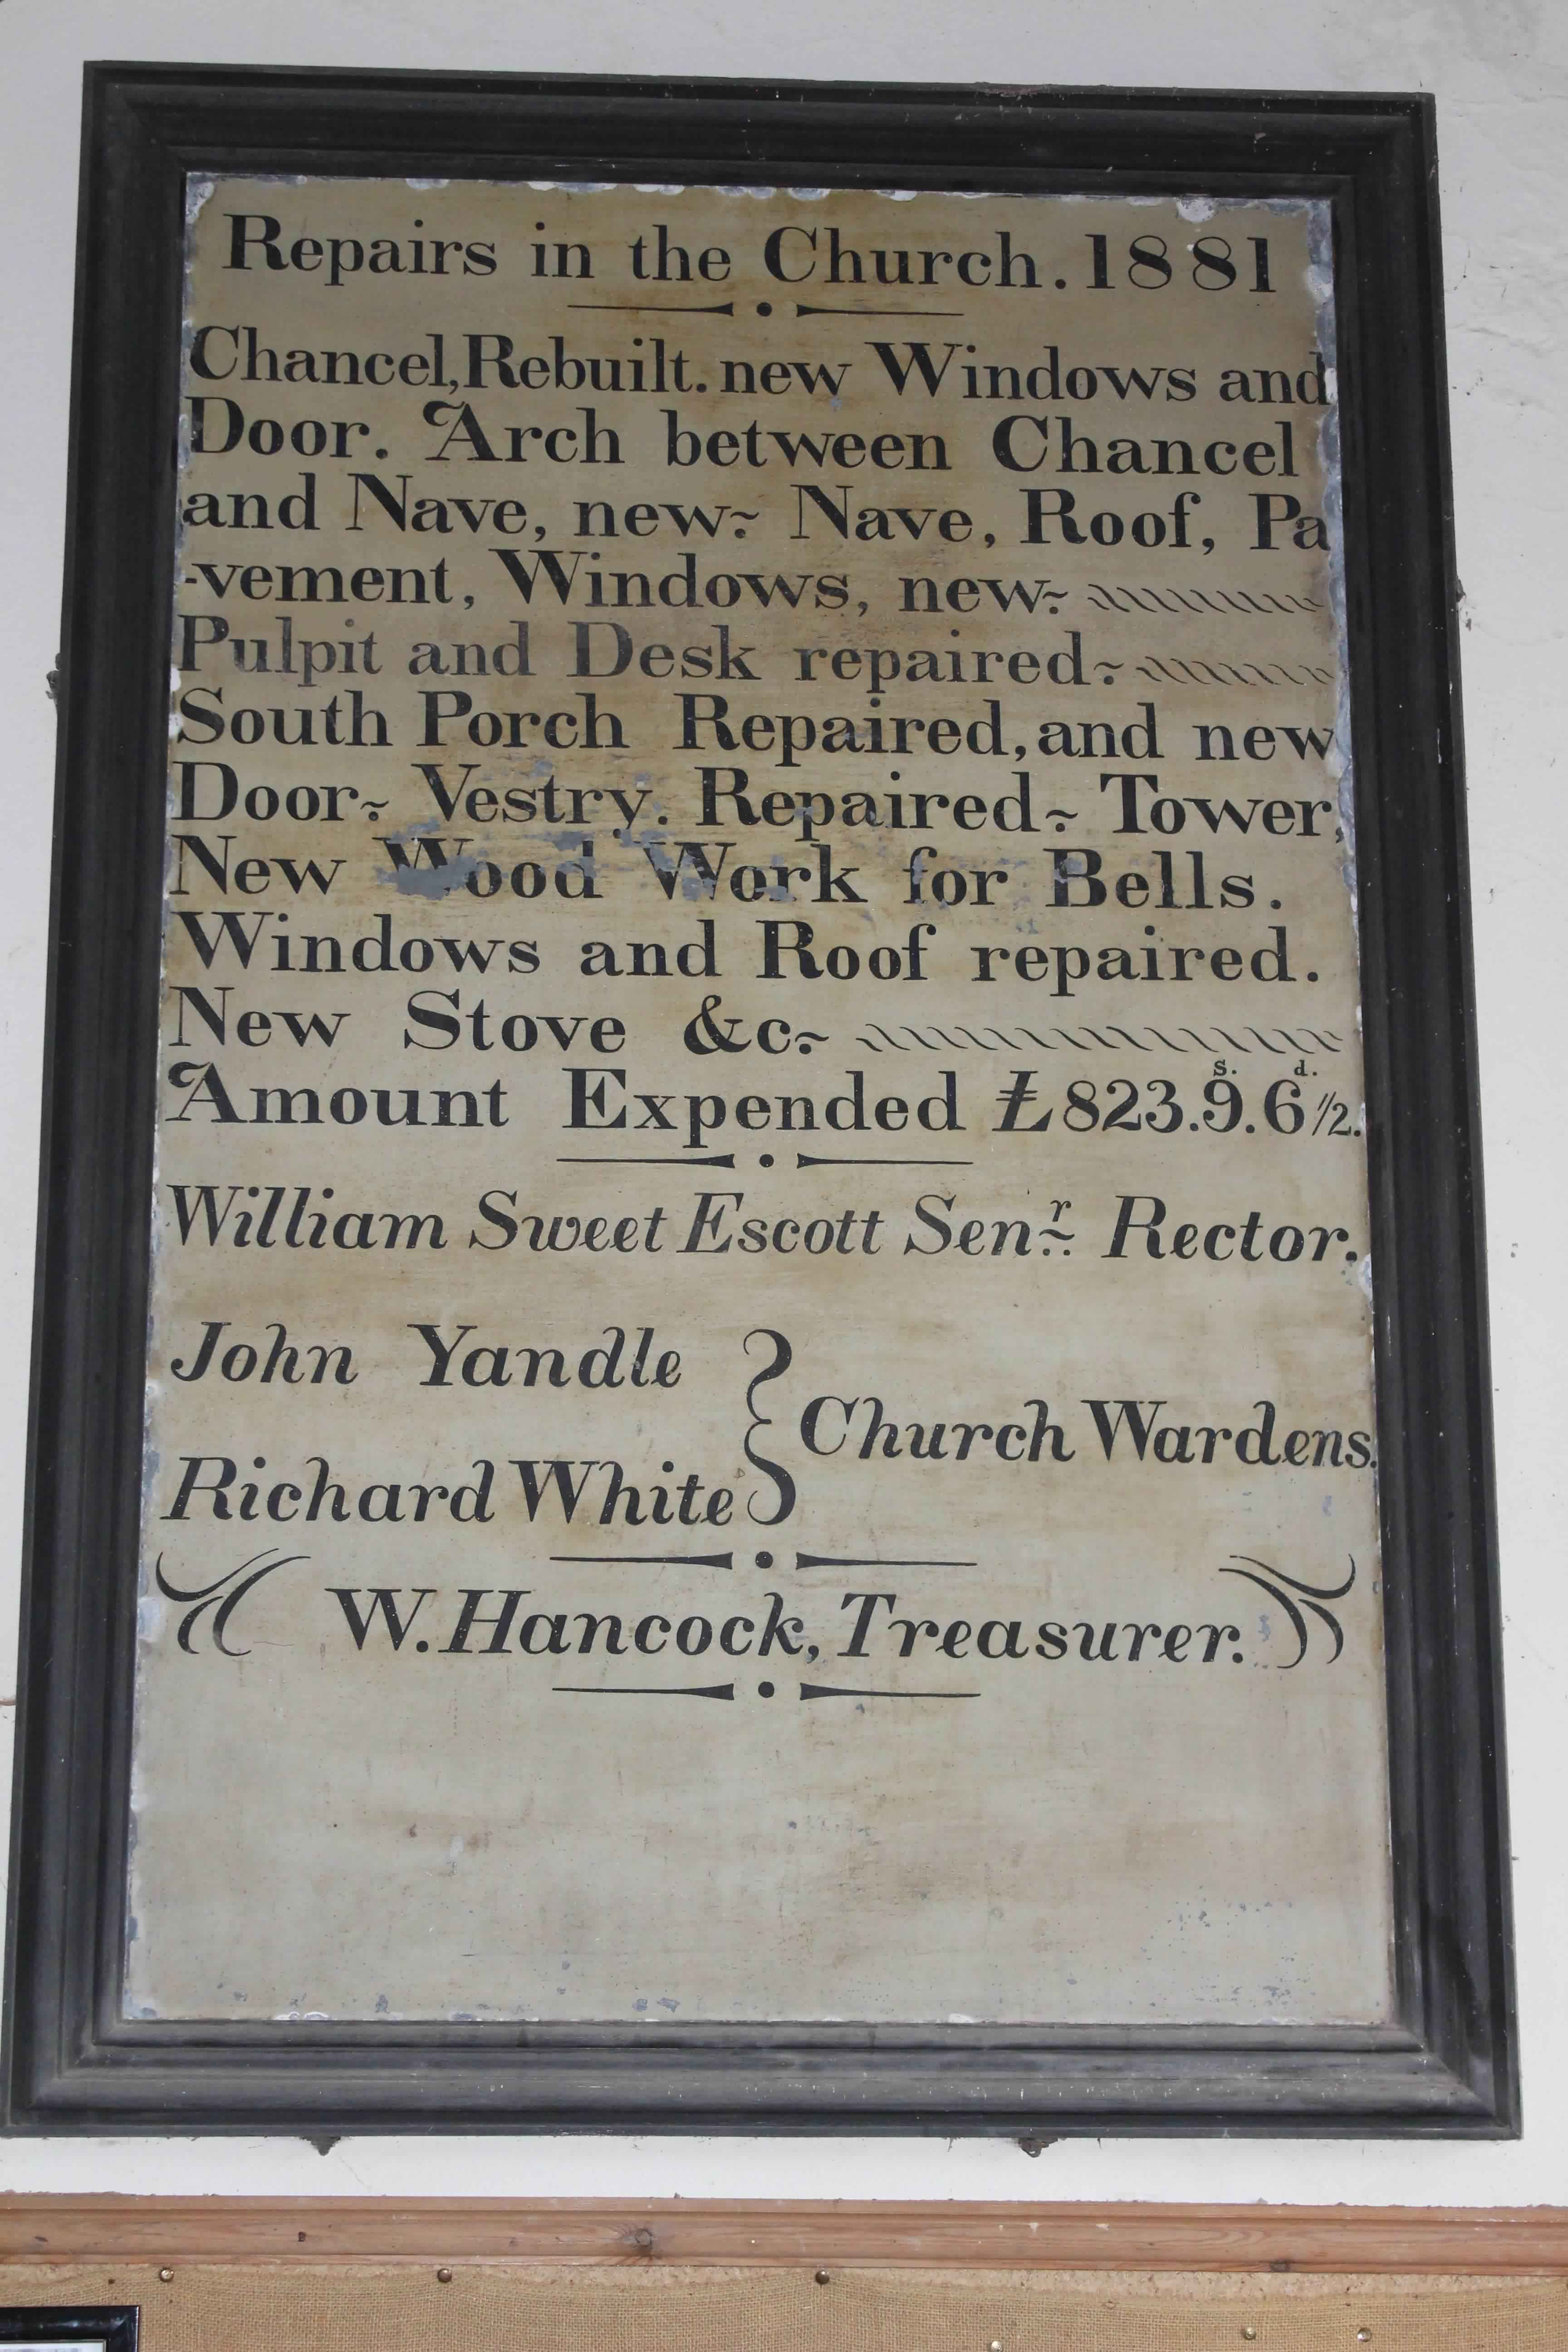 Repairs in the Church. 1881
Chancel, Rebuilt. new Windows and
Door. Arch between Chancel
and Nave, new~ Nave, Roof, Pa
-vement, Windows, new~
Pulpit and Desk repaired~
South Porch Repaired, and new
Door~ Vestry. Repaired~ Tower,
New Wood Work for Bells.
Windows and Roof repaired.
New Stove &c~
Amount Expended £823.9.s.6.d.½.
William Sweet Escott Senr. Rector.
John Yandle
Church Wardens.
Richard White
W. Hancock, Treasurer.